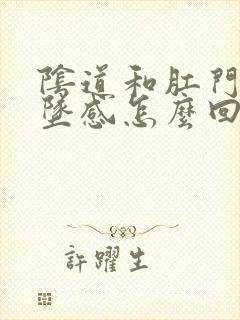 陰道和肛門
墜感怎麼回
許躍生